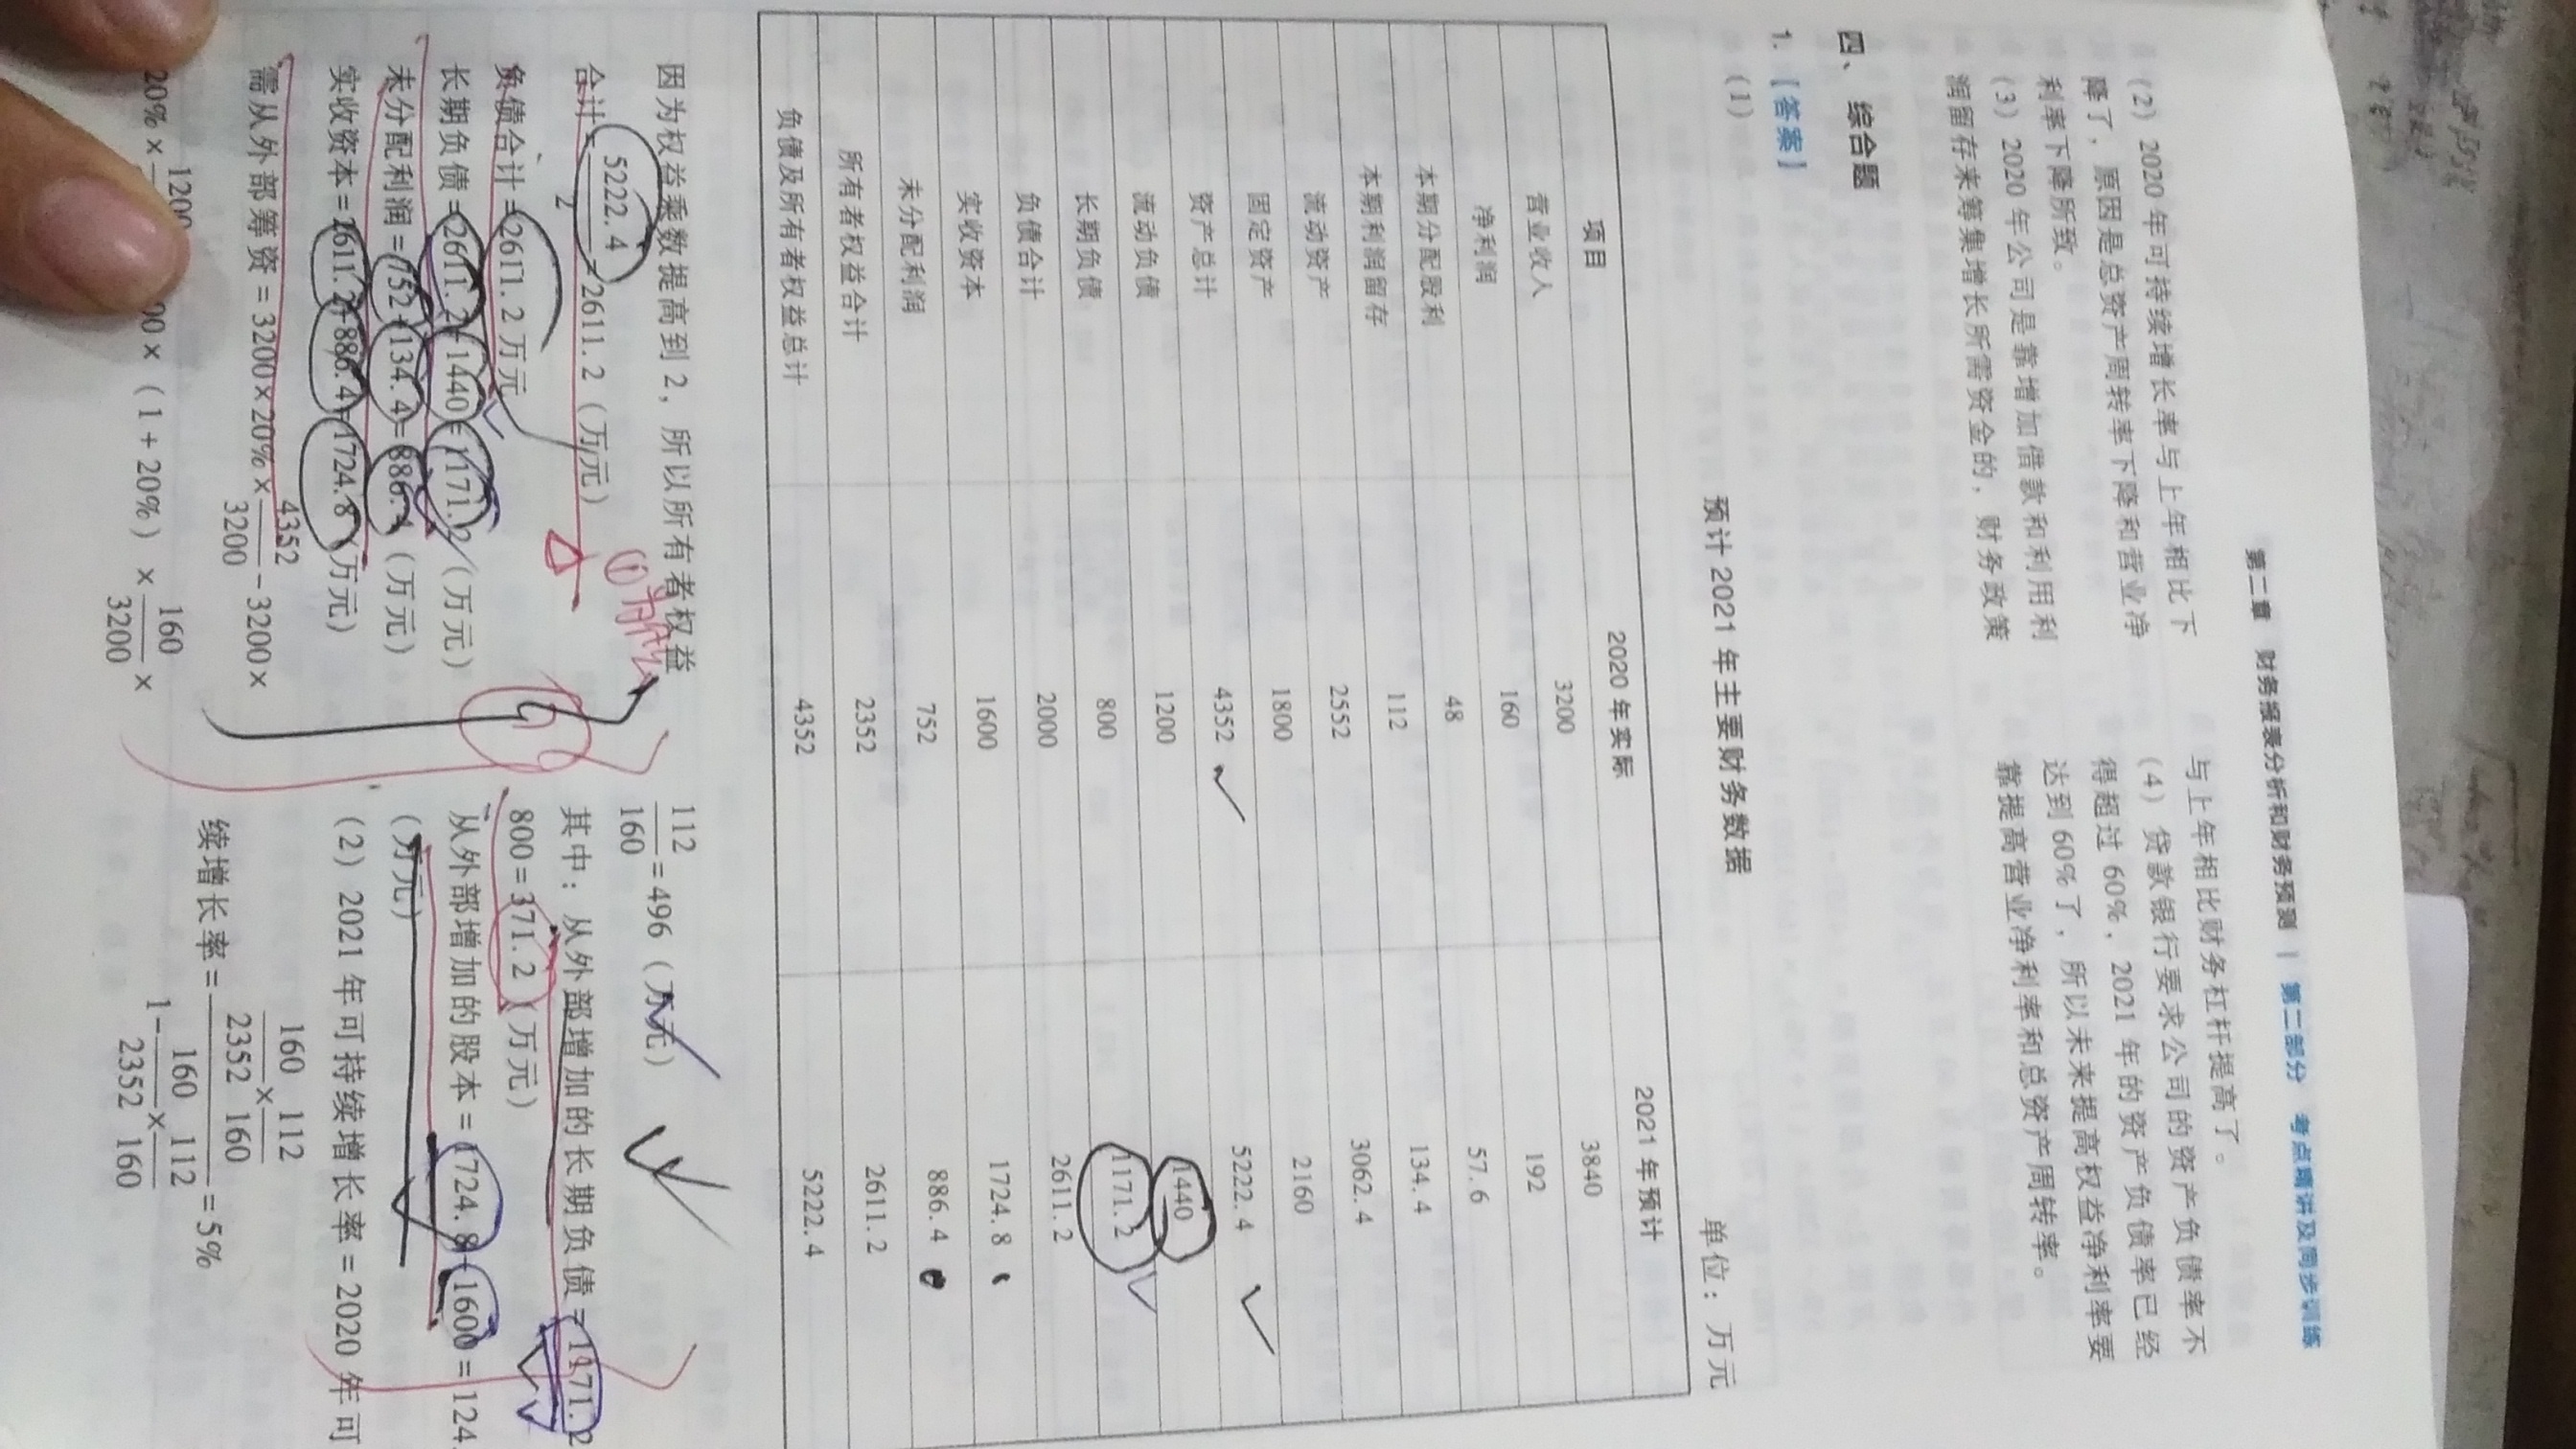 第二章 财务报表分析和财务预测 | 第二部分 考点精讲及同步训练
(2) 2020 年可持续增长率与上年相比下
降了，原因是总资产周转率下降和营业净
利率下降所致。
(3) 2020 年公司是靠增加借款和利用利
润留存来筹集增长所需资金的，财务政策
与上年相比财务杠杆提高了。
(4) 贷款银行要求公司的资产负债率不
得超过 60%，2021 年的资产负债率已经
达到 60% 了，所以未来提高权益净利率要
靠提高营业净利率和总资产周转率。
四、综合题
1. [答案]
(1)
预计 2021 年主要财务数据
单位：万元
项目 2020 年实际 2021 年预计
营业收入 3200 3840
净利润 160 192
本期分配股利 48 57.6
本期利润留存 112 134.4
流动资产 2552 3062.4
固定资产 1800 2160
资产总计 4352 5222.4
流动负债 1200 1440
长期负债 800 1171.2
负债合计 2000 2611.2
实收资本 1600 1724.8
未分配利润 752 886.4
所有者权益合计 2352 2611.2
负债及所有者权益总计 4352 5222.4
因为权益乘数提高到 2，所以所有者权益
合计 = 5222.4 / 2 = 2611.2（万元）
负债合计 = 2611.2 万元
长期负债 = 2611.2 - 1440 = 1171.2（万元）
未分配利润 = 752 + 134.4 = 886.4（万元）
实收资本 = 2611.2 - 886.4 = 1724.8（万元）
需从外部筹资 = 3200 × 20% × 4352 / 3200 - 3200 ×
20% × 1200
00 × (1 + 20%) × 160 / 3200 ×
112 / 160 = 496（万元）
其中：从外部增加的长期负债 = 1171.2
800 = 371.2（万元）
从外部增加的股本 = 1724.8 - 1600 = 124.
（万元）
(2) 2021 年可持续增长率 = 2020 年可
续增长率 = 160 / 2352 × 112 / 160 / 1 - 160 / 2352 × 112 / 160 = 5%